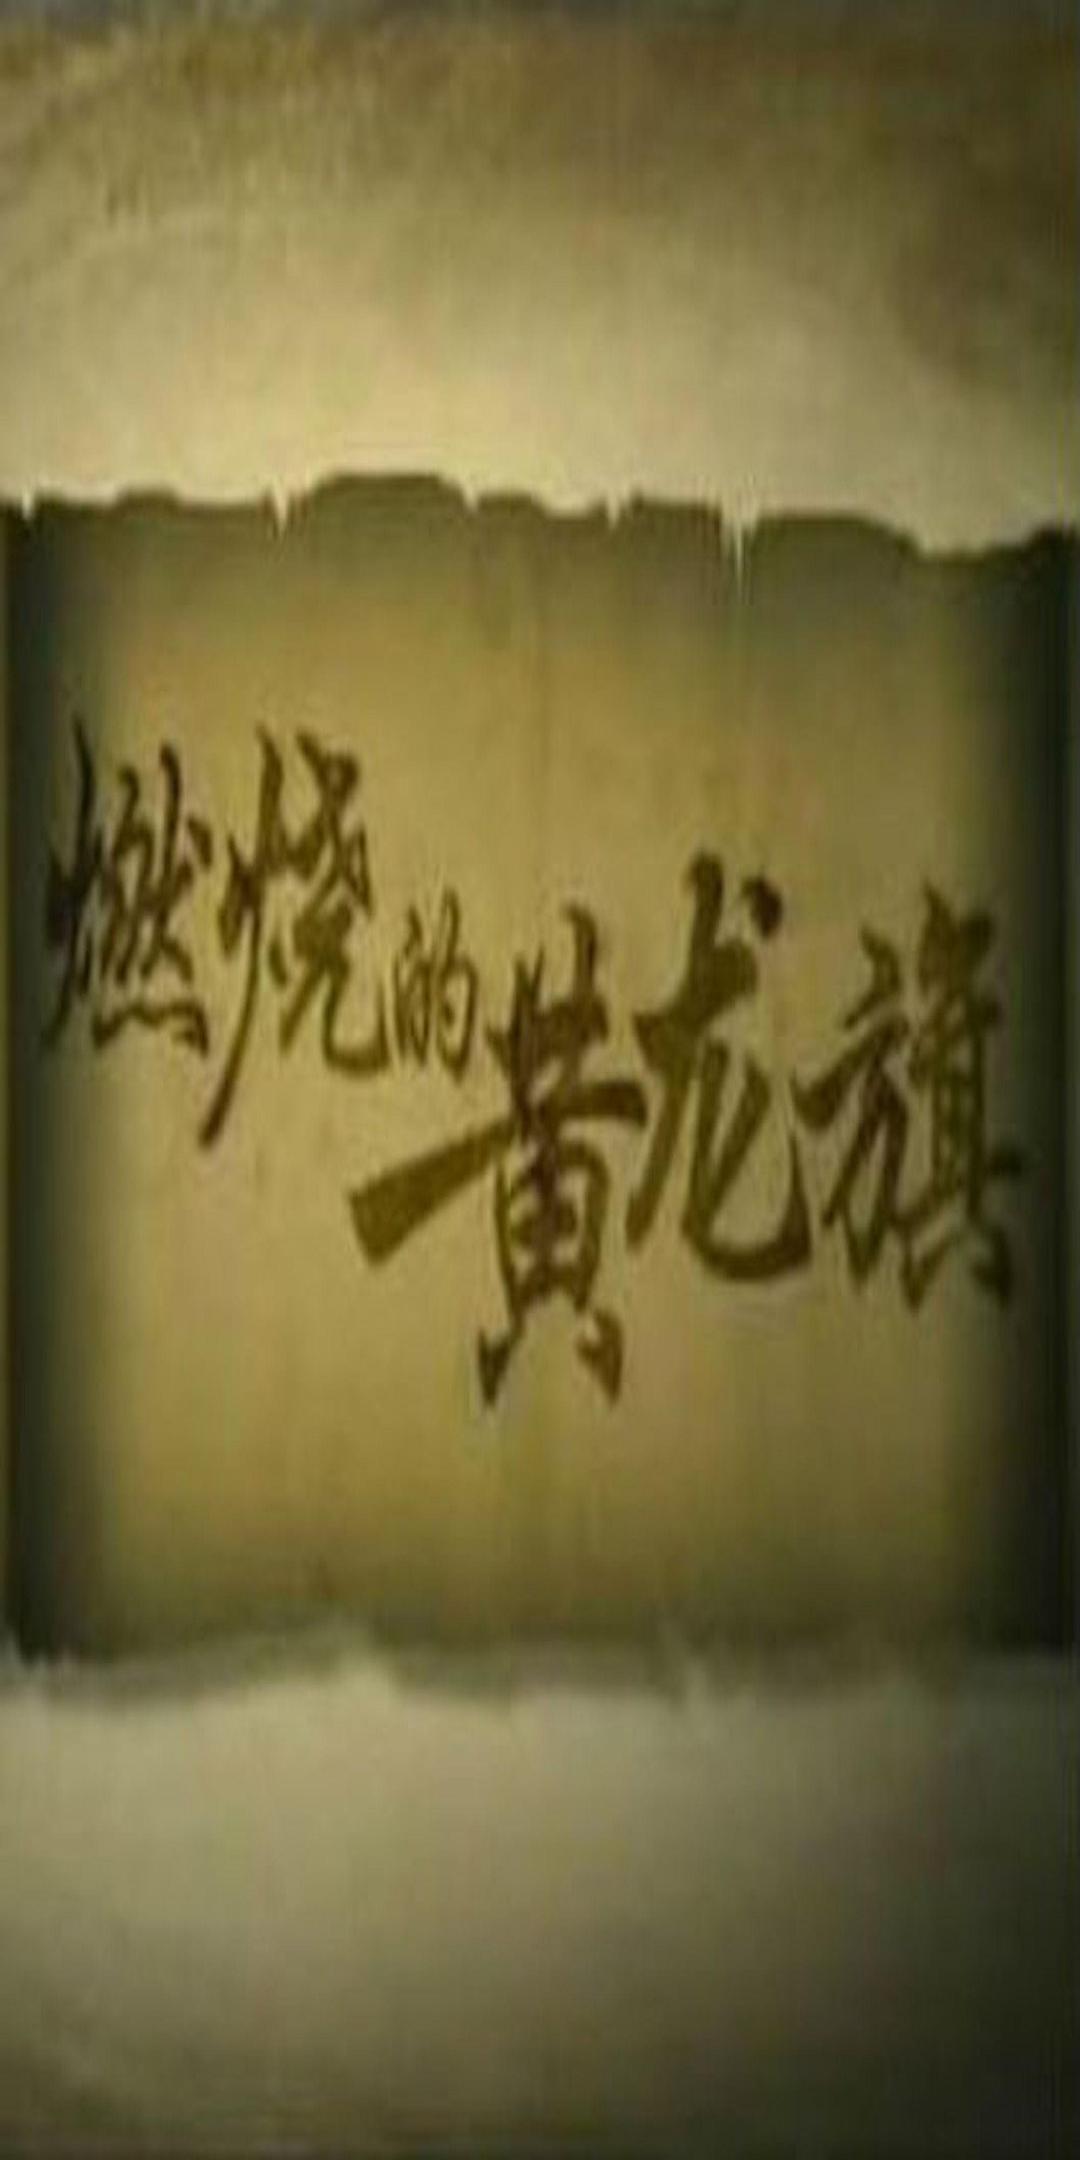 燃烧的黄龙旗